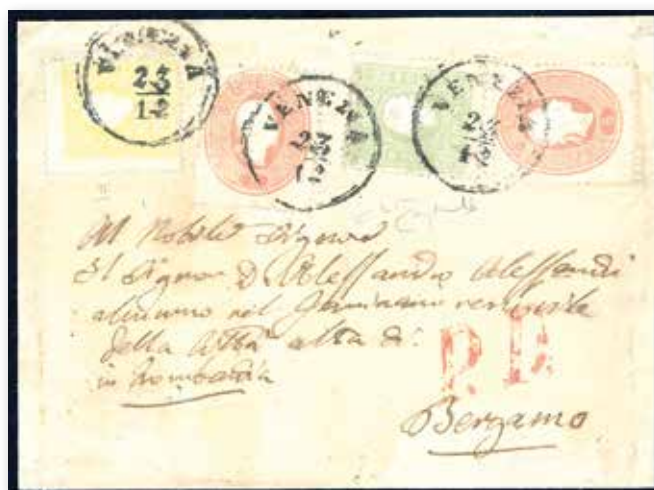 VENEZIA
23
12
VENEZIA
23
12
VENEZIA
23
12
Al Nobile Signore
Il Signor D Alessandro Alessandri
alunno nel Seminario vescovile
della Città alta di
in Lombardia
P. D.
Bergamo